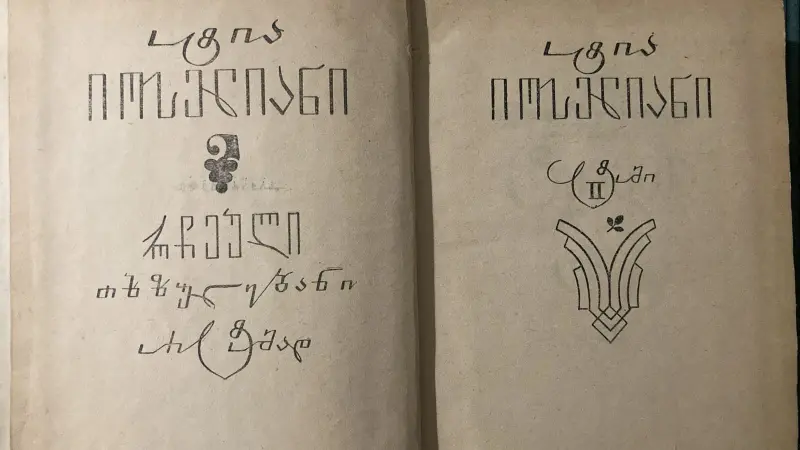 ოტია
იოსელიანი
რჩეული
თხზულებანი
ორ ტომად
ოტია
იოსელიანი
ტომი
II